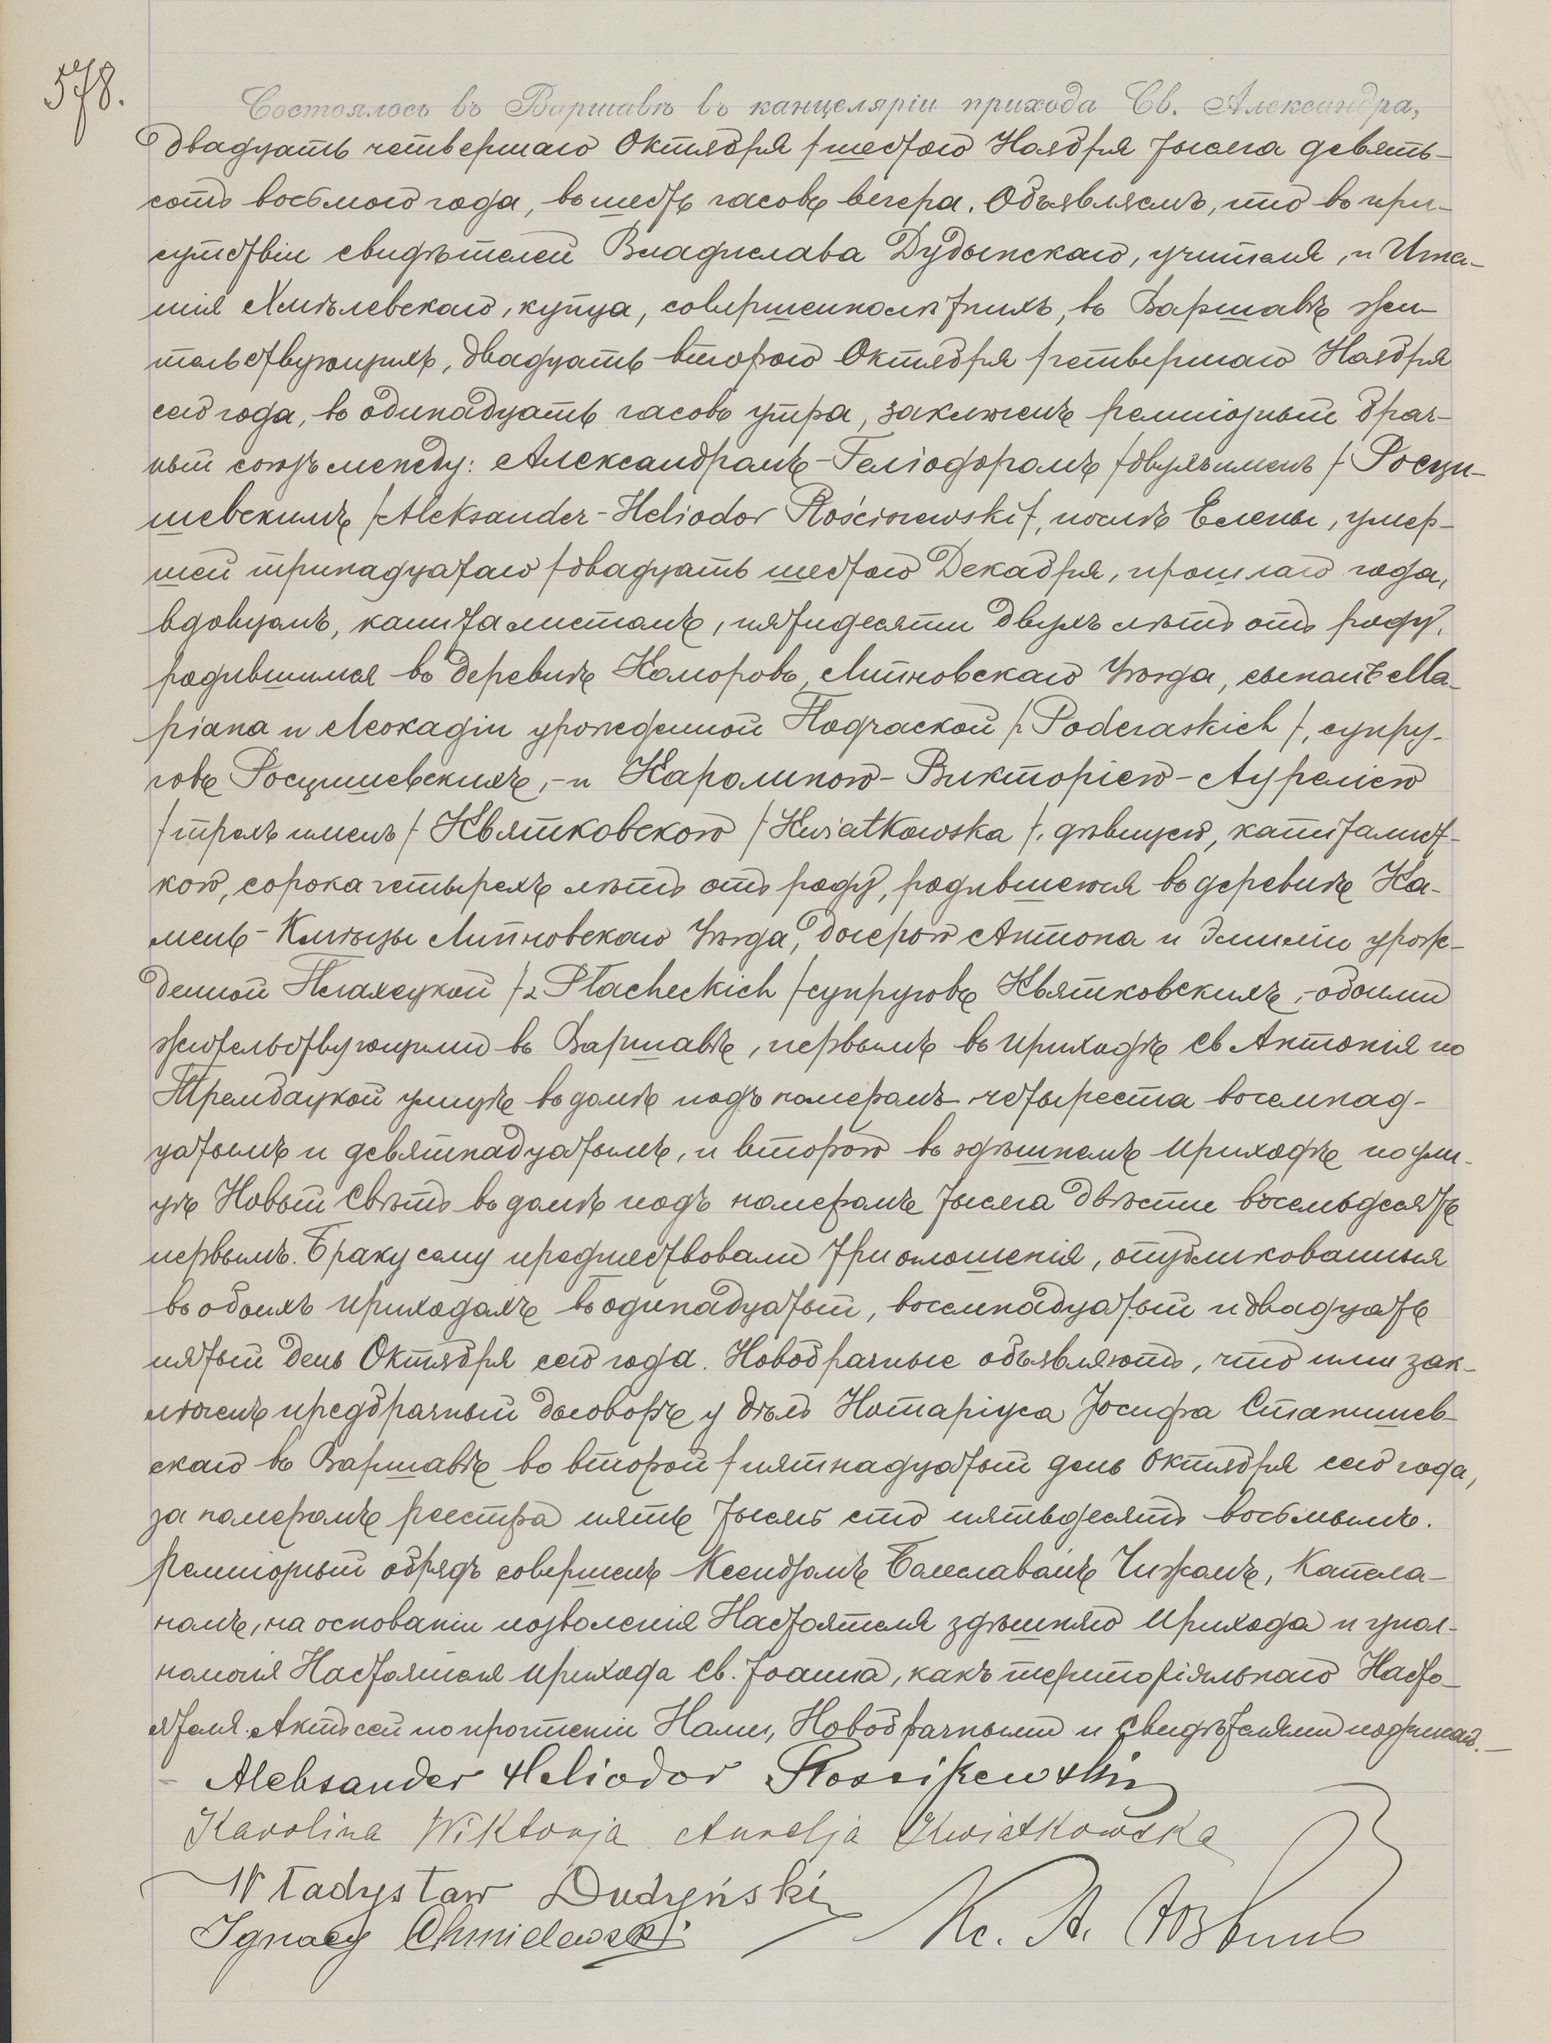 578.
Состоялось въ Варшавѣ въ канцеляріи прихода Св. Александра,
двадцать четвертаго Октября /шестого Ноября тысяча девять-
сотъ восьмого года, въ шесть часовъ вечера. Объявляемъ, что въ при-
сутствіи свидѣтелей Владислава Дудынскаго, учителя, и Игна-
тія Хмѣлевскаго, купца, совершеннолѣтнихъ, въ Варшавѣ жи-
тельствующихъ, двадцать второго Октября /четвертаго Ноября
сего года, въ одинадцать часовъ утра, заключенъ религіозный брач-
ный союзъ между: Александромъ-Геліодоромъ /двухъ именъ/ Росци-
шевскимъ /Aleksander-Heliodor Rościszewski/, послѣ Елены, умер-
шей тринадцатаго /двадцать шестого Декабря, прошлаго года,
вдовцомъ, капиталистомъ, пятидесяти двухъ лѣтъ отъ роду,
родившимся въ деревнѣ Коморово, Липновскаго Уѣзда, сыномъ Ма-
ріана и Леокадіи урожденной Подчаской /Podczaskich/, супру-
говъ Росцишевскихъ,- и Каролиною-Викторіею-Ауреліею
/трехъ именъ/ Квятковскою /Kwiatkowska/, дѣвицею, капиталист-
кою, сорока четырехъ лѣтъ отъ роду, родившеюся въ деревнѣ Ка-
мень-Кмѣцы Липновскаго Уѣзда, дочерью Антона и Эмиліи урож-
денной Плахецкой /z Płacheckich/ супруговъ Квятковскихъ,- обоими
жительствующими въ Варшавѣ, первымъ въ приходѣ Св Антонія по
Трембацкой улицѣ въ домѣ подъ номеромъ четыреста восемнад-
цатымъ и девятнадцатымъ, и второю въ здѣшнемъ приходѣ по ули-
цѣ Новый Свѣтъ въ домѣ подъ номеромъ тысяча двѣсти восемьдесятъ
первымъ. Браку сему предшествовали три оглашенія, опубликованныя
въ обоихъ приходахъ въ одинадцатый, восемнадцатый и двадцать
пятый день Октября сего года. Новобрачные объявляютъ, что ими зак-
люченъ предбрачный договоръ у дѣлъ Нотаріуса Іосифа Станишев-
скаго въ Варшавѣ во второй /пятнадцатый день Октября сего года,
за номеромъ реестра пять тысячъ сто пятьдесятъ восьмымъ.
Религіозный обрядъ совершенъ Ксендзомъ Болеславомъ Чижомъ, Капела-
номъ, на основаніи позволенія Настоятеля здѣшняго прихода и упол-
номочія Настоятеля прихода Св. Іоанна, какъ територіяльнаго Насто-
ятеля. Актъ сей по прочтеніи Нами, Новобрачными и свидѣтелями подписанъ.-
Aleksander Heliodor Rościszewski
Karolina Wiktorja Aurelja Kwiatkowska
Władysław Dudyński
Ignacy Chmielewski Кс. А.